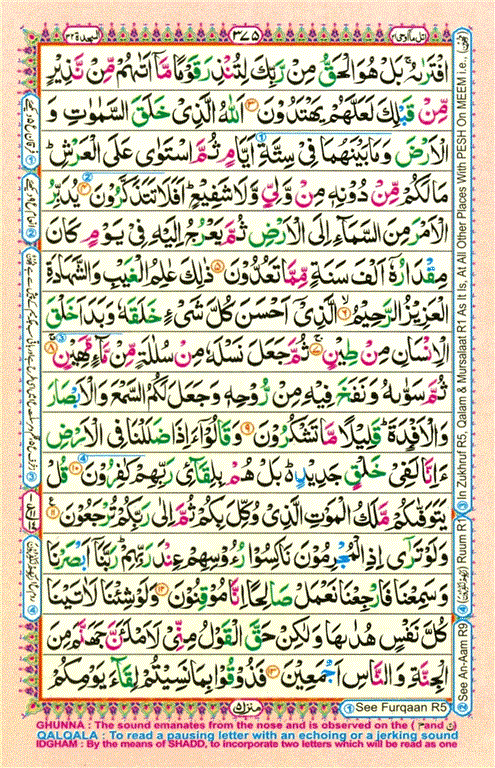 اتل ما اوحی ۲۱
۳۷۵
السجدة ۳۲
افْتَرٰىهُ ۚ بَلْ هُوَ الْحَقُّ مِنْ رَّبِّكَ لِتُنْذِرَ قَوْمًا مَّاۤ اَتٰىهُمْ مِّنْ نَّذِیْرٍ
مِّنْ قَبْلِكَ لَعَلَّهُمْ یَهْتَدُوْنَ ۝۳ اَللّٰهُ الَّذِیْ خَلَقَ السَّمٰوٰتِ وَ
الْاَرْضَ وَمَا بَیْنَهُمَا فِیْ سِتَّةِ اَیَّامٍ ثُمَّ اسْتَوٰی عَلَی الْعَرْشِ ؕ
مَا لَكُمْ مِّنْ دُوْنِهٖ مِنْ وَّلِیٍّ وَّلَا شَفِیْعٍ ؕ اَفَلَا تَتَذَكَّرُوْنَ ۝۴ یُدَبِّرُ
الْاَمْرَ مِنَ السَّمَآءِ اِلَی الْاَرْضِ ثُمَّ یَعْرُجُ اِلَیْهِ فِیْ یَوْمٍ كَانَ
مِقْدَارُهٗۤ اَلْفَ سَنَةٍ مِّمَّا تَعُدُّوْنَ ۝۵ ذٰلِكَ عٰلِمُ الْغَیْبِ وَالشَّهَادَةِ
الْعَزِیْزُ الرَّحِیْمُ ۝۶ الَّذِیْۤ اَحْسَنَ كُلَّ شَیْءٍ خَلَقَهٗ وَبَدَاَ خَلْقَ
الْاِنْسَانِ مِنْ طِیْنٍ ۝۷ ثُمَّ جَعَلَ نَسْلَهٗ مِنْ سُلٰلَةٍ مِّنْ مَّآءٍ مَّهِیْنٍ ۝۸
ثُمَّ سَوّٰىهُ وَنَفَخَ فِیْهِ مِنْ رُّوْحِهٖ وَجَعَلَ لَكُمُ السَّمْعَ وَالْاَبْصَارَ
وَالْاَفْـِٕدَةَ ؕ قَلِیْلًا مَّا تَشْكُرُوْنَ ۝۹ وَقَالُوْۤا ءَاِذَا ضَلَلْنَا فِی الْاَرْضِ
ءَاِنَّا لَفِیْ خَلْقٍ جَدِیْدٍ ؕ بَلْ هُمْ بِلِقَآئِ رَبِّهِمْ كٰفِرُوْنَ ۝۱۰ قُلْ
یَتَوَفّٰىكُمْ مَّلَكُ الْمَوْتِ الَّذِیْ وُكِّلَ بِكُمْ ثُمَّ اِلٰی رَبِّكُمْ تُرْجَعُوْنَ ۝۱۱
وَلَوْ تَرٰۤی اِذِ الْمُجْرِمُوْنَ نَاكِسُوْا رُءُوْسِهِمْ عِنْدَ رَبِّهِمْ ؕ رَبَّنَاۤ اَبْصَرْنَا
وَسَمِعْنَا فَارْجِعْنَا نَعْمَلْ صَالِحًا اِنَّا مُوْقِنُوْنَ ۝۱۲ وَلَوْ شِئْنَا لَاٰتَیْنَا
كُلَّ نَفْسٍ هُدٰىهَا وَلٰكِنْ حَقَّ الْقَوْلُ مِنِّیْ لَاَمْلَـَٔنَّ جَهَنَّمَ مِنَ
الْجِنَّةِ وَالنَّاسِ اَجْمَعِیْنَ ۝۱۳ فَذُوْقُوْا بِمَا نَسِیْتُمْ لِقَآءَ یَوْمِكُمْ
منزل ۵
① See Furqaan R5
② See An-Aam R9
③ In Zukhruf R5, Qalam & Mursalaat R1 As It Is, At All Other Places With PESH On MEEM i.e.,
④ Ruum R1
GHUNNA : The sound emanates from the nose and is observed on the ( م and ن )
QALQALA : To read a pausing letter with an echoing or a jerking sound
IDGHAM : By the means of SHADD, to incorporate two letters which will be read as one